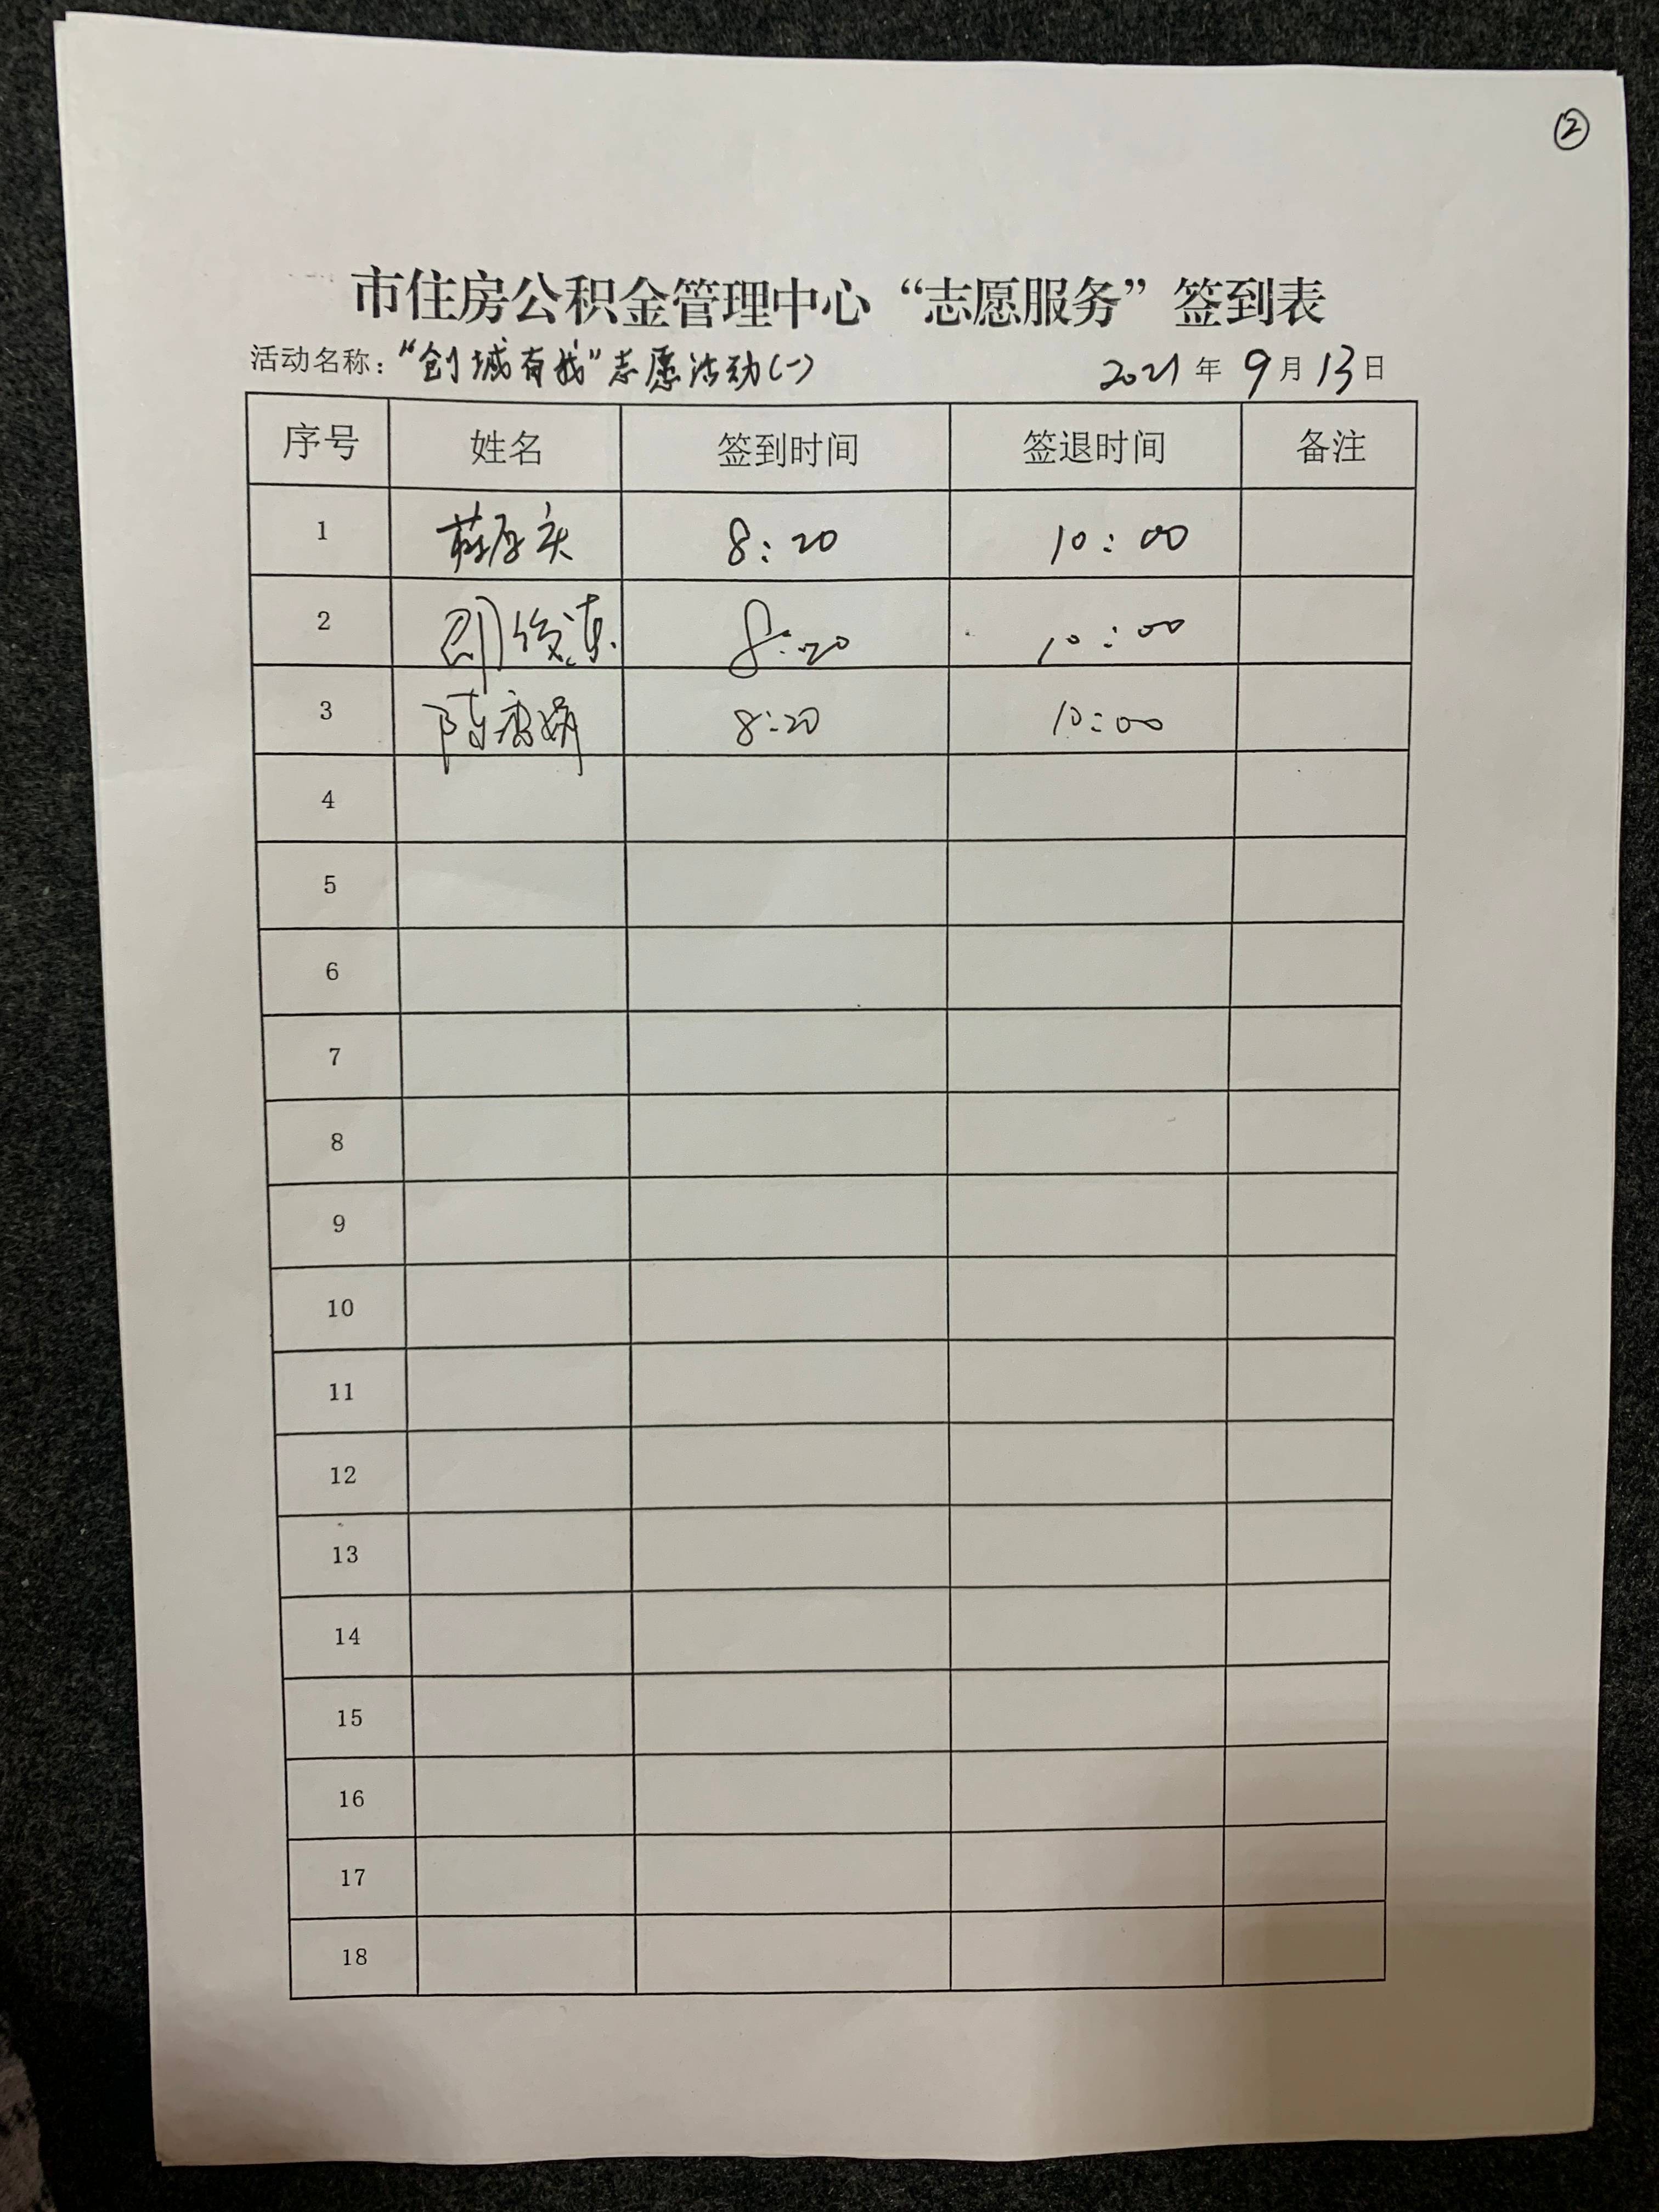 ②
市住房公积金管理中心“志愿服务”签到表
活动名称：“创城有我”志愿活动(一) 2021年9月13日
序号 姓名 签到时间 签退时间 备注
1 8:20 10:00
2 8:20 10:00
3 陈 娟 8:20 10:00
4
5
6
7
8
9
10
11
12
13
14
15
16
17
18